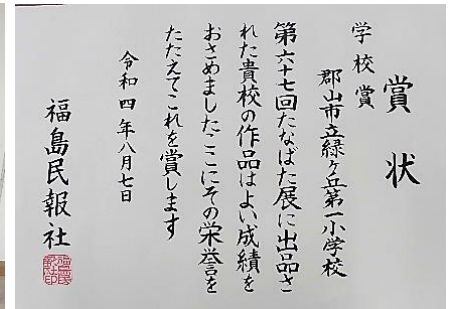 賞状
学校賞
郡山市立緑ケ丘第一小学校
第六十七回たなばた展に出品さ
れた貴校の作品はよい成績を
おさめましたここにその栄誉を
たたえてこれを賞します
令和四年八月七日
福島民報社